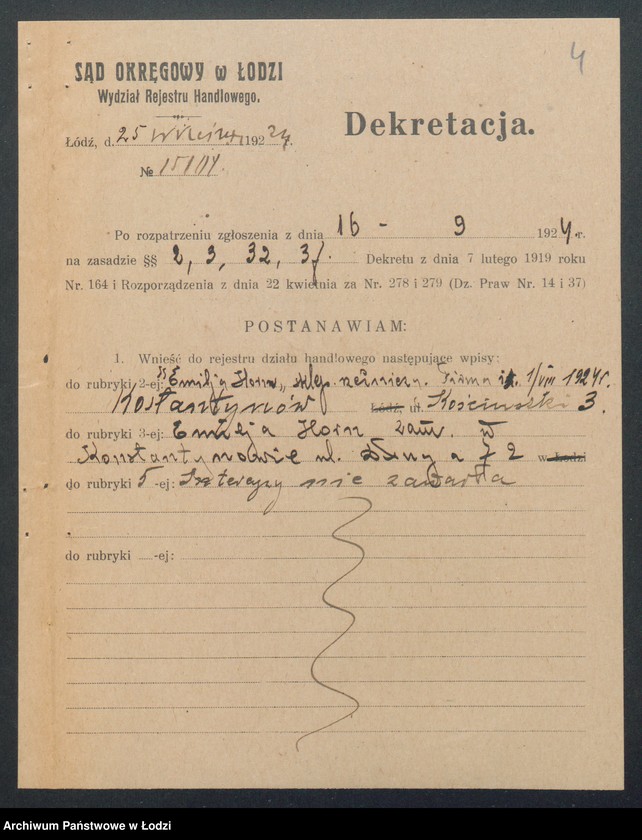 4
SĄD OKRĘGOWY w ŁODZI
Wydział Rejestru Handlowego.
Dekretacja.
Łódź, d. 25 Września 1924 r.
№ 15104.
Po rozpatrzeniu zgłoszenia z dnia 16 - 9 1924 r.
na zasadzie §§ 2, 3, 32, Dekretu z dnia 7 lutego 1919 roku
Nr. 164 i Rozporządzenia z dnia 22 kwietnia za Nr. 278 i 279 (Dz. Praw Nr. 14 i 37)
POSTANAWIAM:
1. Wnieść do rejestru działu handlowego następujące wpisy:
do rubryki 2-ej: „Emilja Horn„ sklep rzeźniczy. Firma 1/VIII 1924 r.
Kostantynów Łódź, ul. Kościuszki 3.
do rubryki 3-ej: Emilja Horn zam. w
Konstantynowie ul. Długa 72 w Łodzi
do rubryki 5-ej: Intercyzy nie zawarła
do rubryki -ej:
Archiwum Państwowe w Łodzi